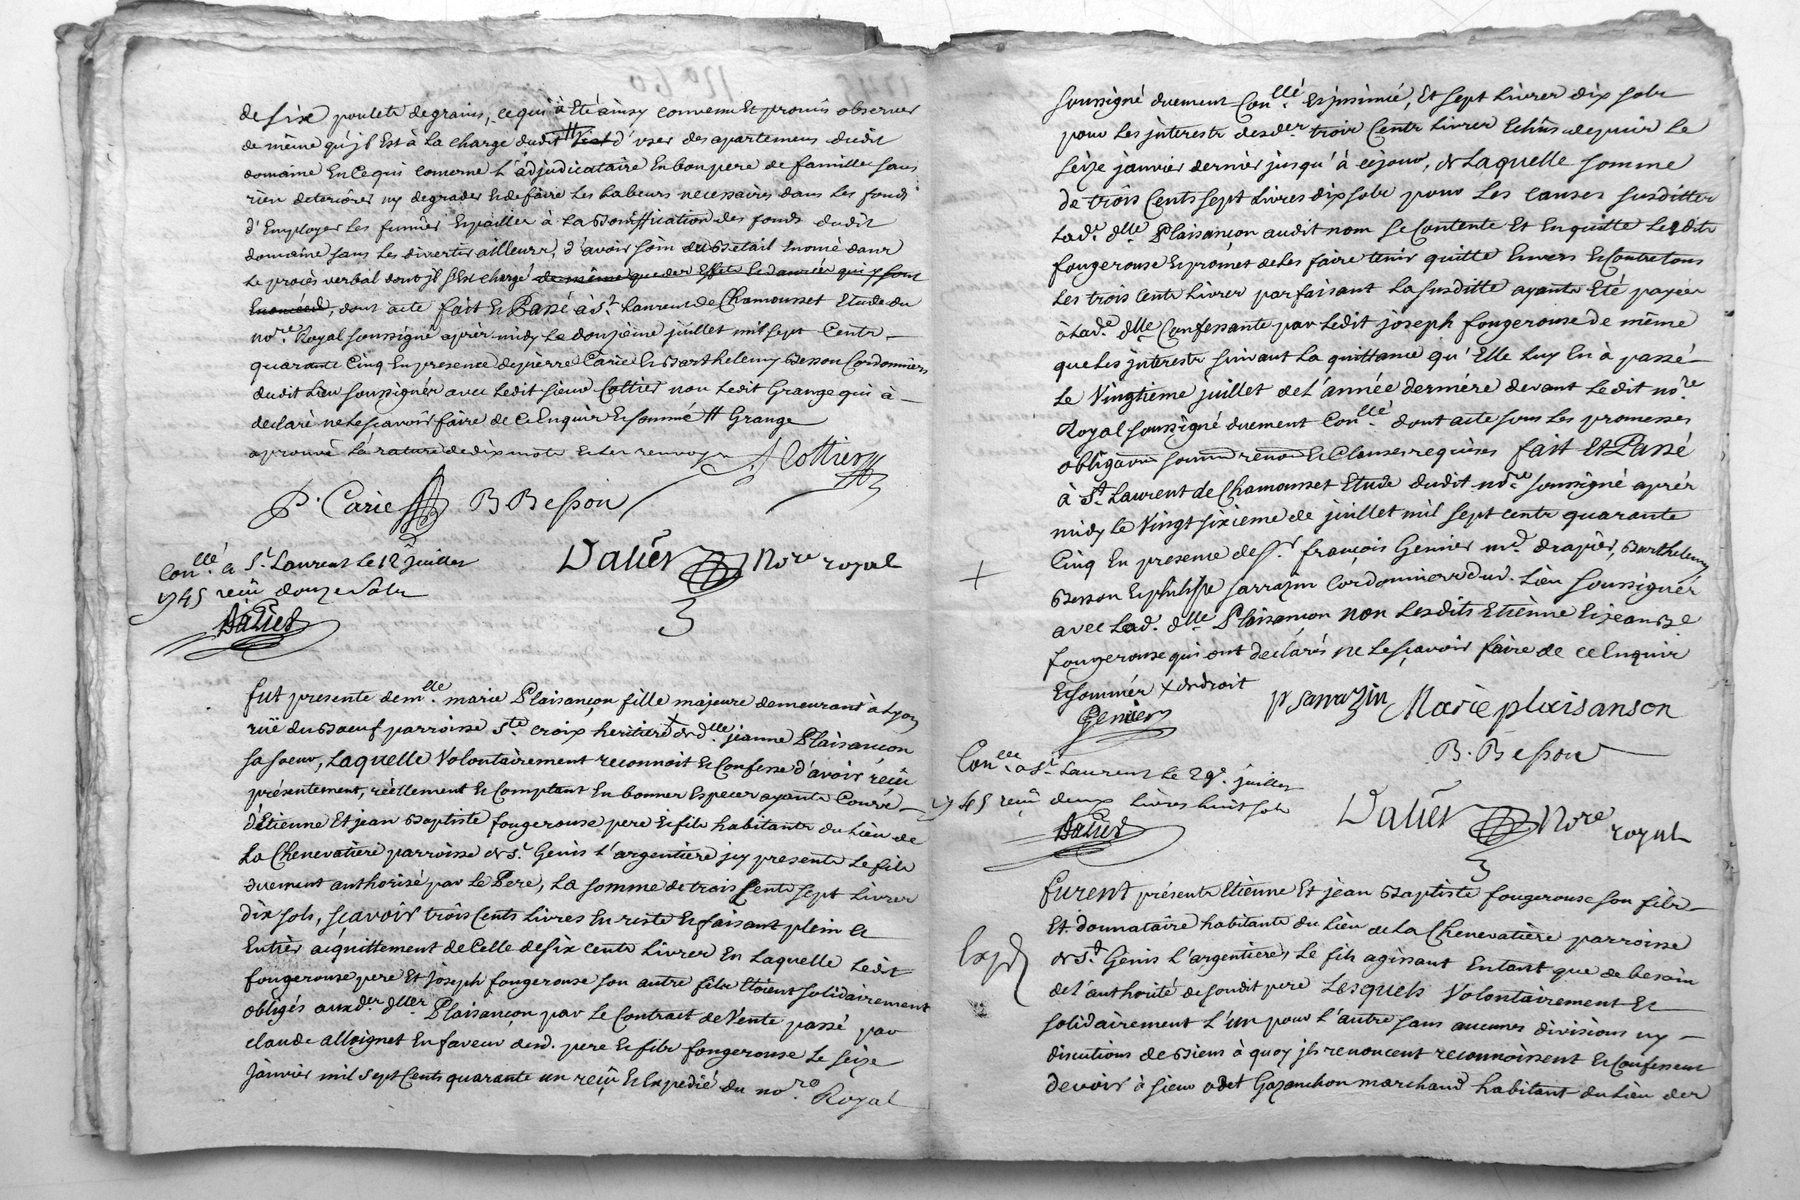 de six poulets de grains, ce qui a Eté ainsy convenu Et promis observer
de même qu'jl Est à La charge dudit # d'user des apartemens dudit
domaine En ce qui concerne L'adjudicataire En bon pere de famille sans
rien deteriorer ny degrader Et de faire Les Labeurs necessaires dans Les fonds
d'Employer Les fumier Et pailles à La Bonnification des fonds dudit
domaine sans Les divertir ailleurs, d'avoir soin du Betail Enomé dans
Le procès verbal dont jl s'Est chargé de même que des Effets Et danrées qui y sont
Enoncées, dont acte fait Et Passé à St. Laurent de Chamousset Etude du
nore. Royal soussigné après midy Le douzième juillet mil sept Cents
quarante Cinq En presence de pierre Carie Et Barthelemy Besson Cordonniers
dudit Lieu soussignés avec Ledit sieur Cottier non Ledit Grange qui à
declaré ne Le sçavoir faire de ce Enquis Et sommé # Grange
aprouvé La rature de dix mots Et Le renvoy
A Cottier
P. Carie B Besson
Dalier Nore royal
Conllé. a St. Laurent Le 12 juillet
1745 reçu douze sols
Dalier
fut presente demlle. marie Plaisançon fille majeure demeurant à Lyon
rüe du Boeuf parroisse Ste. croix heritiere x de dlle jeanne Plaisançon
sa soeur, Laquelle Volontairement reconnoit Et Confesse d'avoir réçû
présentement, réellement Et Comptant En bonnes Especes ayants Cours
d'Etienne Et jean Baptiste fougerouse pere Et fils habitants du Lieu de
La Chenevatiere parroisse de St. Genis L'argentiere jcy presents Le fils
duement authorisé par Le Pere, La somme de trois Cents sept Livres
dix sols, scavoir trois Cents Livres En reste Et faisant plein Et
Entier acquittement de Celle de six cents Livres En Laquelle Ledit
fougerouse pere Et joseph fougerouse son autre fils Etoient solidairement
obligés auxdes. dlles. Plaisançon par Le Contract de Vente passé par
claude alloignet En faveur desd. pere Et fils fougerouse Le seize
Janvier mil sept Cents quarante un reçû Et Expedié du nore. Royal
soussigné duement Conllé. Et jnsinué, Et sept Livres dix sols
pour Les jnterests desdes. trois Cents Livres Echûs depuis Le
seize janvier dernier jusqu'à cejour, de Laquelle somme
de trois Cents sept Livres dix sols pour Les causes susdittes
Lade. dlle Plaisançon audit nom se Contente Et En quitte Lesdits
fougerouse Et promet de Les faire tenir quitte Envers Et Contre tous
Les trois Cents Livres parfaisant La susditte ayants Eté payés
à Lade. dlle Confessante par Ledit joseph fougerouse de même
que Les jnterests suivant La quittance qu'Elle Luy En à passé
Le Vingtieme juillet de L'année derniére devant Ledit nore.
Royal soussigné duement Conllé. dont acte sous Les promesses
obligaons soumons renons Et Clauses requises fait Et Passé
à St. Laurent de Chamousset Etude dudit nore soussigné après
midy Le Vingt sixieme de juillet mil sept cents quarante
Cinq En presence de sr. françois Genier md. drapier, Barthelemy
Besson Et philippe sarrazin Cordonniers dud. Lieu soussignés
avec Lad. dlle Plaisançon non Lesdits Etienne Et jean Bte
fougerouse qui ont declarés ne Le sçavoir faire de ce Enquis
Et sommés x de droit
Genier P sarrazin Marie plaisanson
B. Besson
Conllé a St Laurent Le 29e. juillet
1745 reçû deux Livres huit sols
Dalier
Dalier Nore royal
furent présents Etienne Et jean Baptiste fougerouse son fils
Et donnataire habitants du Lieu de La Chenevatière parroisse
Expd
de St. Genis L'argentiere Le fils agissant Entant que de besoin
de L'authorité de soudit pere Lesquels Volontairement Et
solidairement L'un pour L'autre sans aucunes divisions ny
discutions de Biens à quoy jls renoncent reconnoissent Et Confessent
devoir à sieur odet Gazanchon marchand habitant du Lieu des